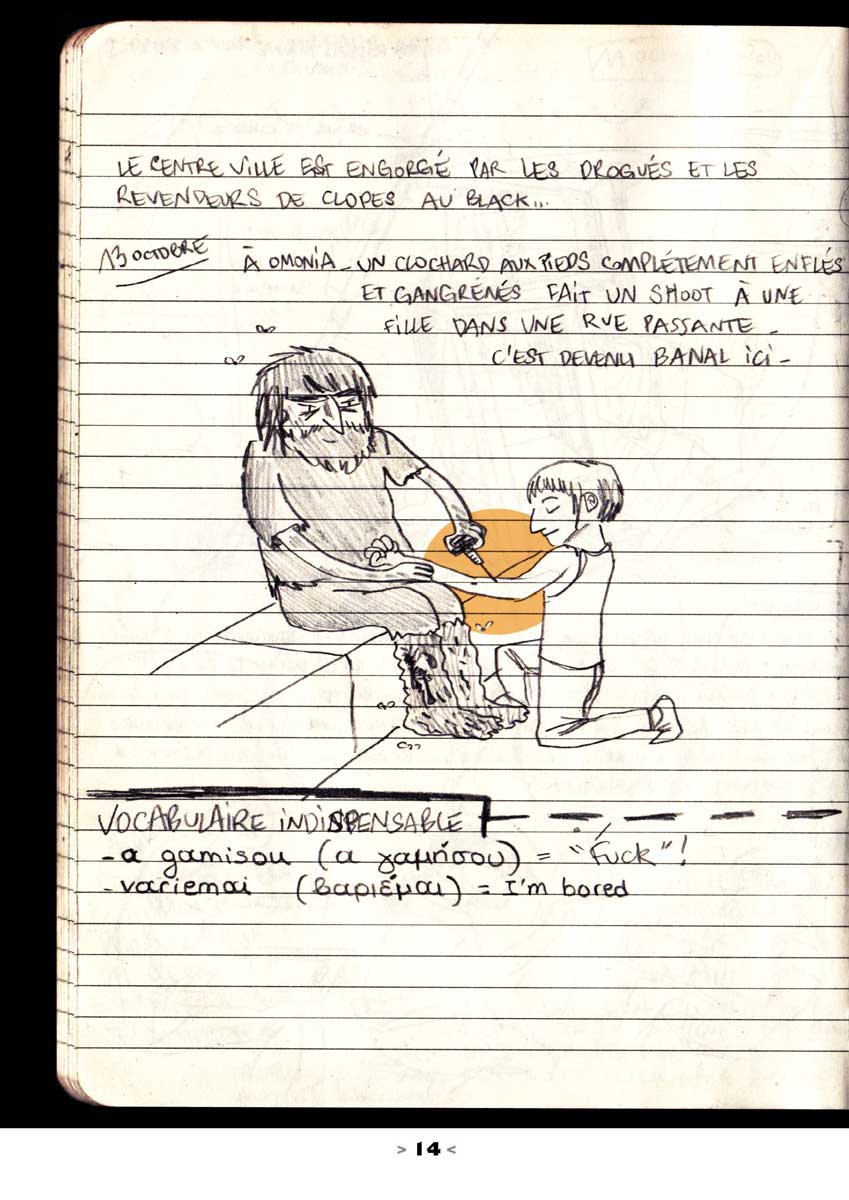 LE CENTRE VILLE EST ENGORGÉ PAR LES DROGUÉS ET LES
REVENDEURS DE CLOPES AU BLACK...
13 OCTOBRE
À OMONIA - UN CLOCHARD AUX PIEDS COMPLÉTEMENT ENFLÉS
ET GANGRÉNÉS FAIT UN SHOOT À UNE
FILLE DANS UNE RUE PASSANTE -
C'EST DEVENU BANAL ICI -
VOCABULAIRE INDISPENSABLE
- a gamisou (α γαμήσου) = "Fuck"!
- variemai (βαριέμαι) = I'm bored
> 14 <